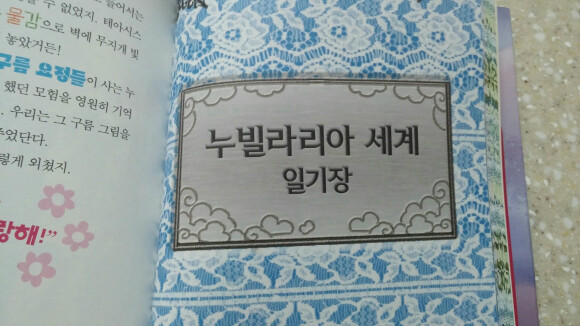 들어서는
수 없었지. 테아시스
물감으로 벽에 무지개 빛
놓았거든!
구름 요정들이 사는 누
했던 모험을 영원히 기억
우리는 그 구름 그림을
주었단다.
렇게 외쳤지.
랑해!”
누빌라리아 세계
일기장